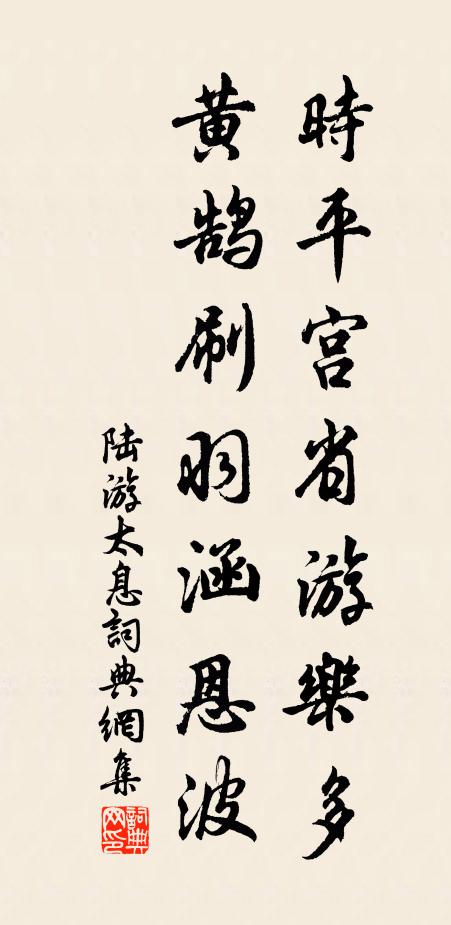 時平宫省游樂多
黄鹄刷羽涵恩波
陆游太息詞典網集
詞典网印